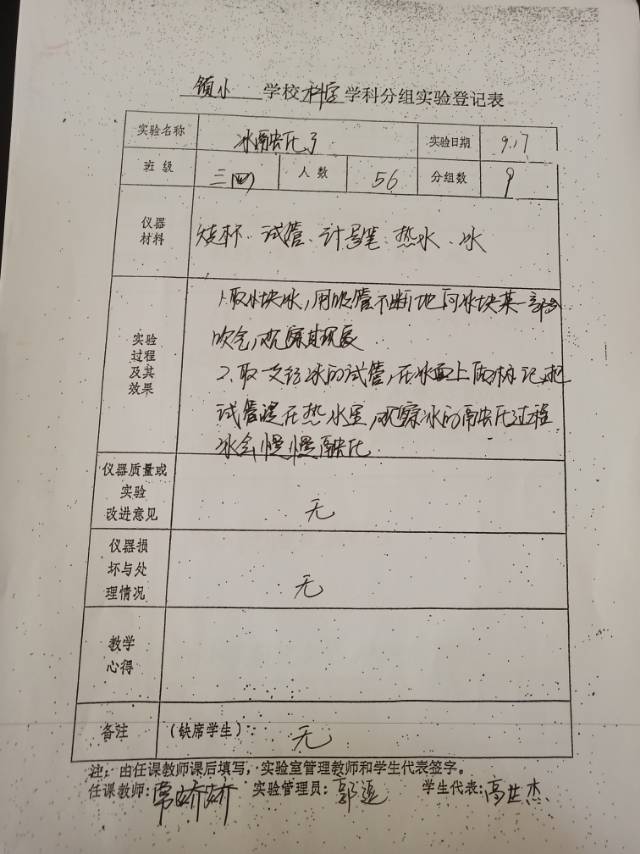 镇小 学校 科室 学科分组实验登记表
实验名称 冰融化了 实验日期 9.17
班 级 三四 人 数 56 分组数 9
仪器
材料
烧杯、试管、计号笔、热水、冰
实验
过程
及其
效果
1.取小块冰,用吸管不断地向冰块某一部份
吹气,观察其现象
2.取一支结冰的试管,在冰面上做标记,把
试管浸在热水里,观察冰的融化过程
冰会慢慢融化
仪器质量或
实验
改进意见
无
仪器损
坏与处
理情况
无
教学
心得
备注 (缺席学生): 无
注:由任课教师课后填写,实验室管理教师和学生代表签字。
任课教师:常娇娇 实验管理员:郭 学生代表:高世杰